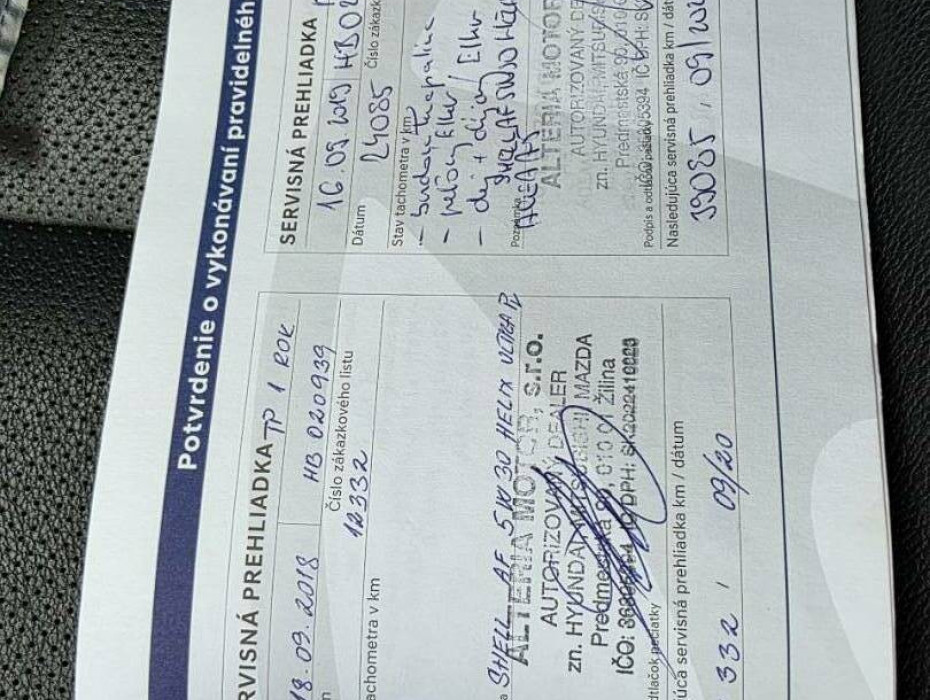 Potvrdenie o vykonávaní pravidelného
RVISNÁ PREHLIADKA TP 1 ROK
18.09.2018 HB 020939
Číslo zákazkového listu
12332
achometra v km
SHELL AF 5W30 HELIX ULTRA
ALTERIA MOTOR, s.r.o.
AUTORIZOVANÝ DEALER
zn. HYUNDAI, MITSUBISHI, MAZDA
Predmestská 90, 010 01 Žilina
IČO: 36805394 IČ DPH: SK2022410023
dtlačok pečiatky
úca servisná prehliadka km / dátum
332 / 09/20
SERVISNÁ PREHLIADKA
16.09.2019 HB02
Dátum
Číslo zákazk
24085
Stav tachometra v km
- peľový filter
Poznámka
ALTERIA MOTOR
AUTORIZOVANÝ DE
zn. HYUNDAI, MITSU
Predmestská 90, 010
IČO: 36805394 IČ DPH: SK
Podpis a odtlačok pečiatky
Nasledujúca servisná prehliadka km / dát
39085 , 09/20